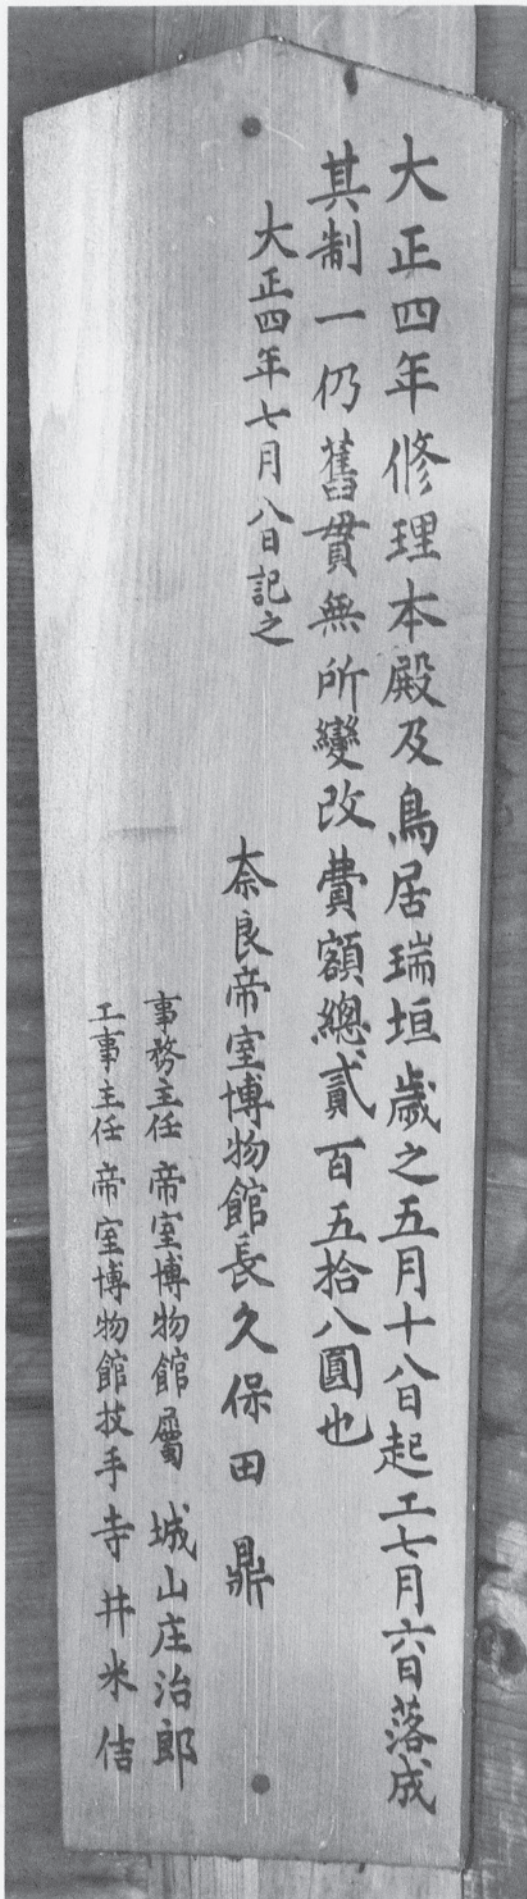 大正四年修理本殿及鳥居瑞垣歳之五月十八日起工七月六日落成
其制一仍舊貫無所變改費額總貳百五拾八圓也
大正四年七月八日記之
奈良帝室博物館長久保田鼎
事務主任 帝室博物館屬 城山庄治郎
工事主任 帝室博物館技手 寺井米佶